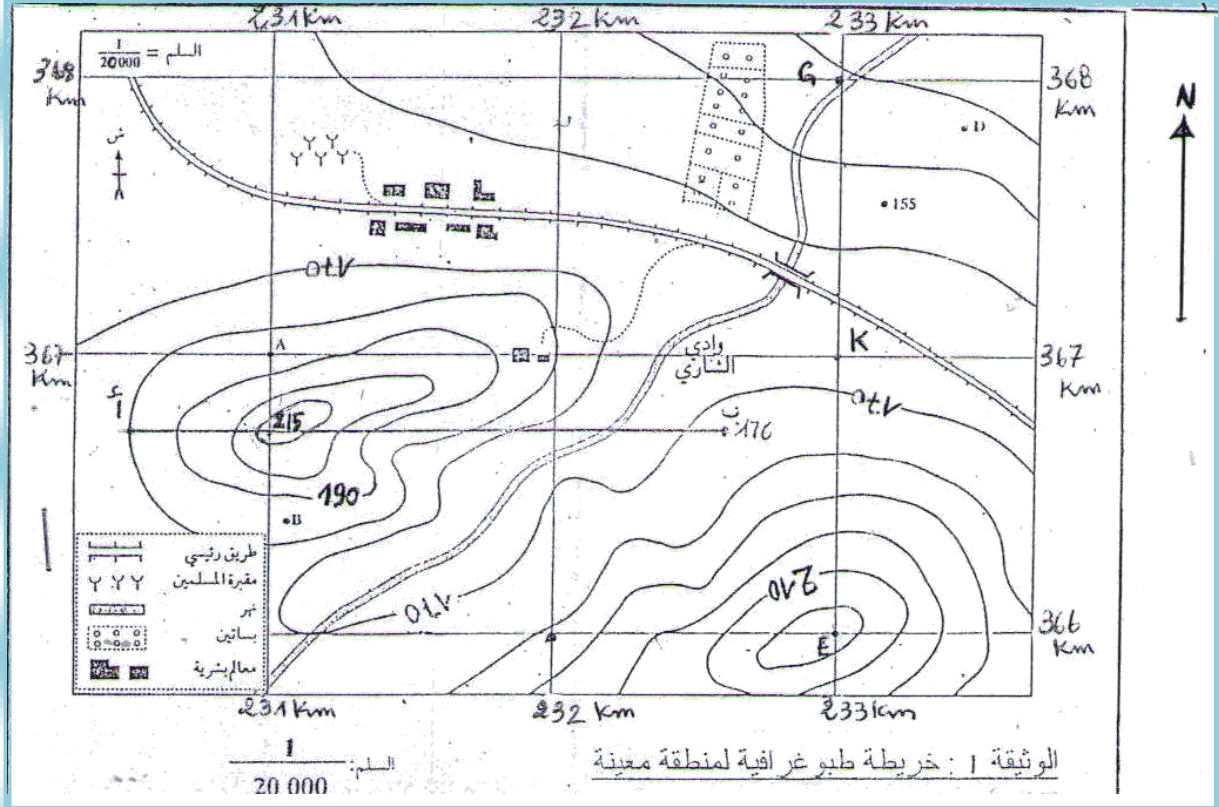 231 Km 232 Km 233 Km
السلم = 1/20000
368 Km
G
368 Km
N
ش
D
155
170
367 Km
A
وادي الشاري
K
367 Km
أ
215
ب
170
170
190
B
210
170
E
366 Km
طريق رئيسي
مقبرة المسلمين
نهر
بساتين
معالم بشرية
231 Km 232 Km 233 Km
السلم: 1/20 000
الوثيقة 1 : خريطة طبوغرافية لمنطقة معينة